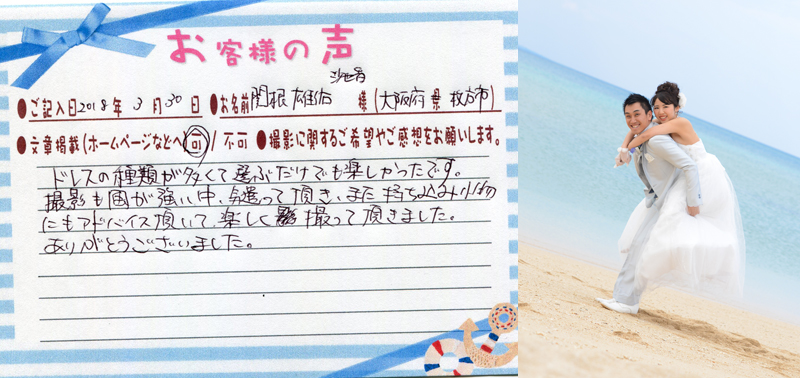 お客様の声
●ご記入日2018年 3月30日 ●お名前 関根 雄佑 様(大阪府県 枚方市)
●文章掲載(ホームページなどへ 可 / 不可 ●撮影に関するご希望やご感想をお願いします。
ドレスの種類が多くて選ぶだけでも楽しかったです。
撮影も風が強い中、頑張って頂き、また持ち込み小物
にもアドバイス頂いて、楽しく撮って頂きました。
ありがとうございました。